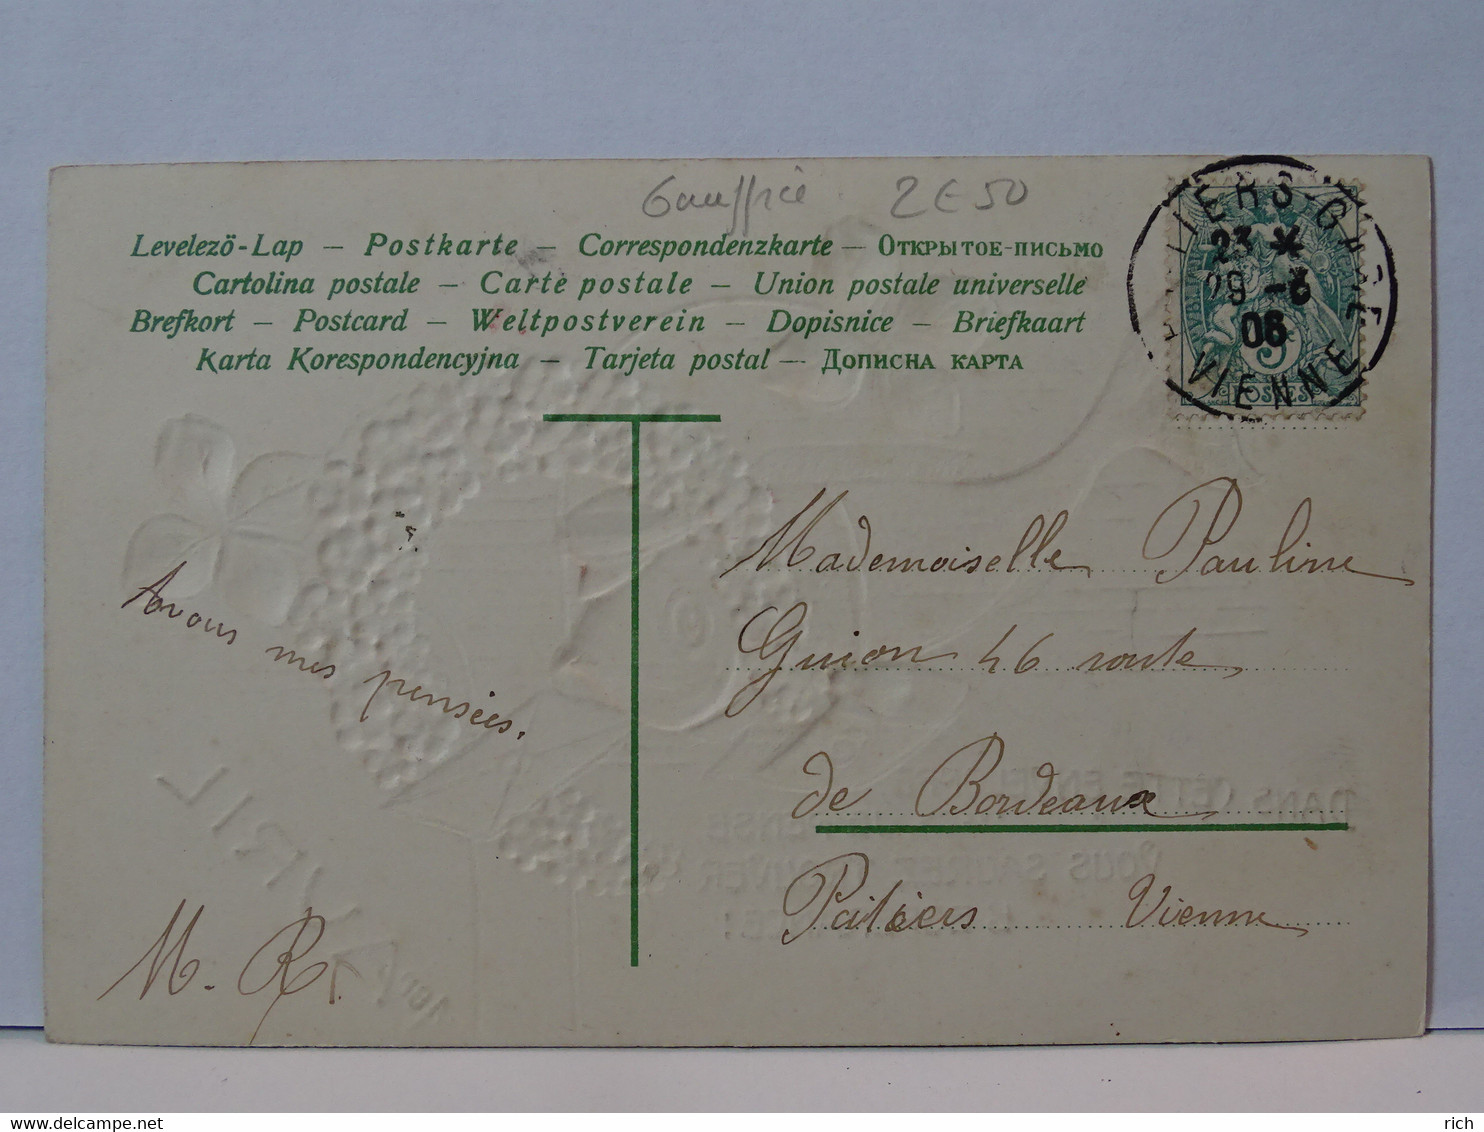 Gauffrée 2€50
Levelezö-Lap – Postkarte – Correspondenzkarte – Открытое-письмо
Cartolina postale – Carte postale – Union postale universelle
Brefkort – Postcard – Weltpostverein – Dopisnice – Briefkaart
Karta Korespondencyjna – Tarjeta postal – Дописна карта
TIERS-GARE
23 *
29 -3
06
VIENNE
5
POSTES
Mademoiselle Pauline
Guion 46 route
de Bordeaux
Poitiers Vienne
A vous mes pensées.
M. R.
1er AVRIL
DANS CETTE
VOUS SAUREZ
delcampe.net
rich